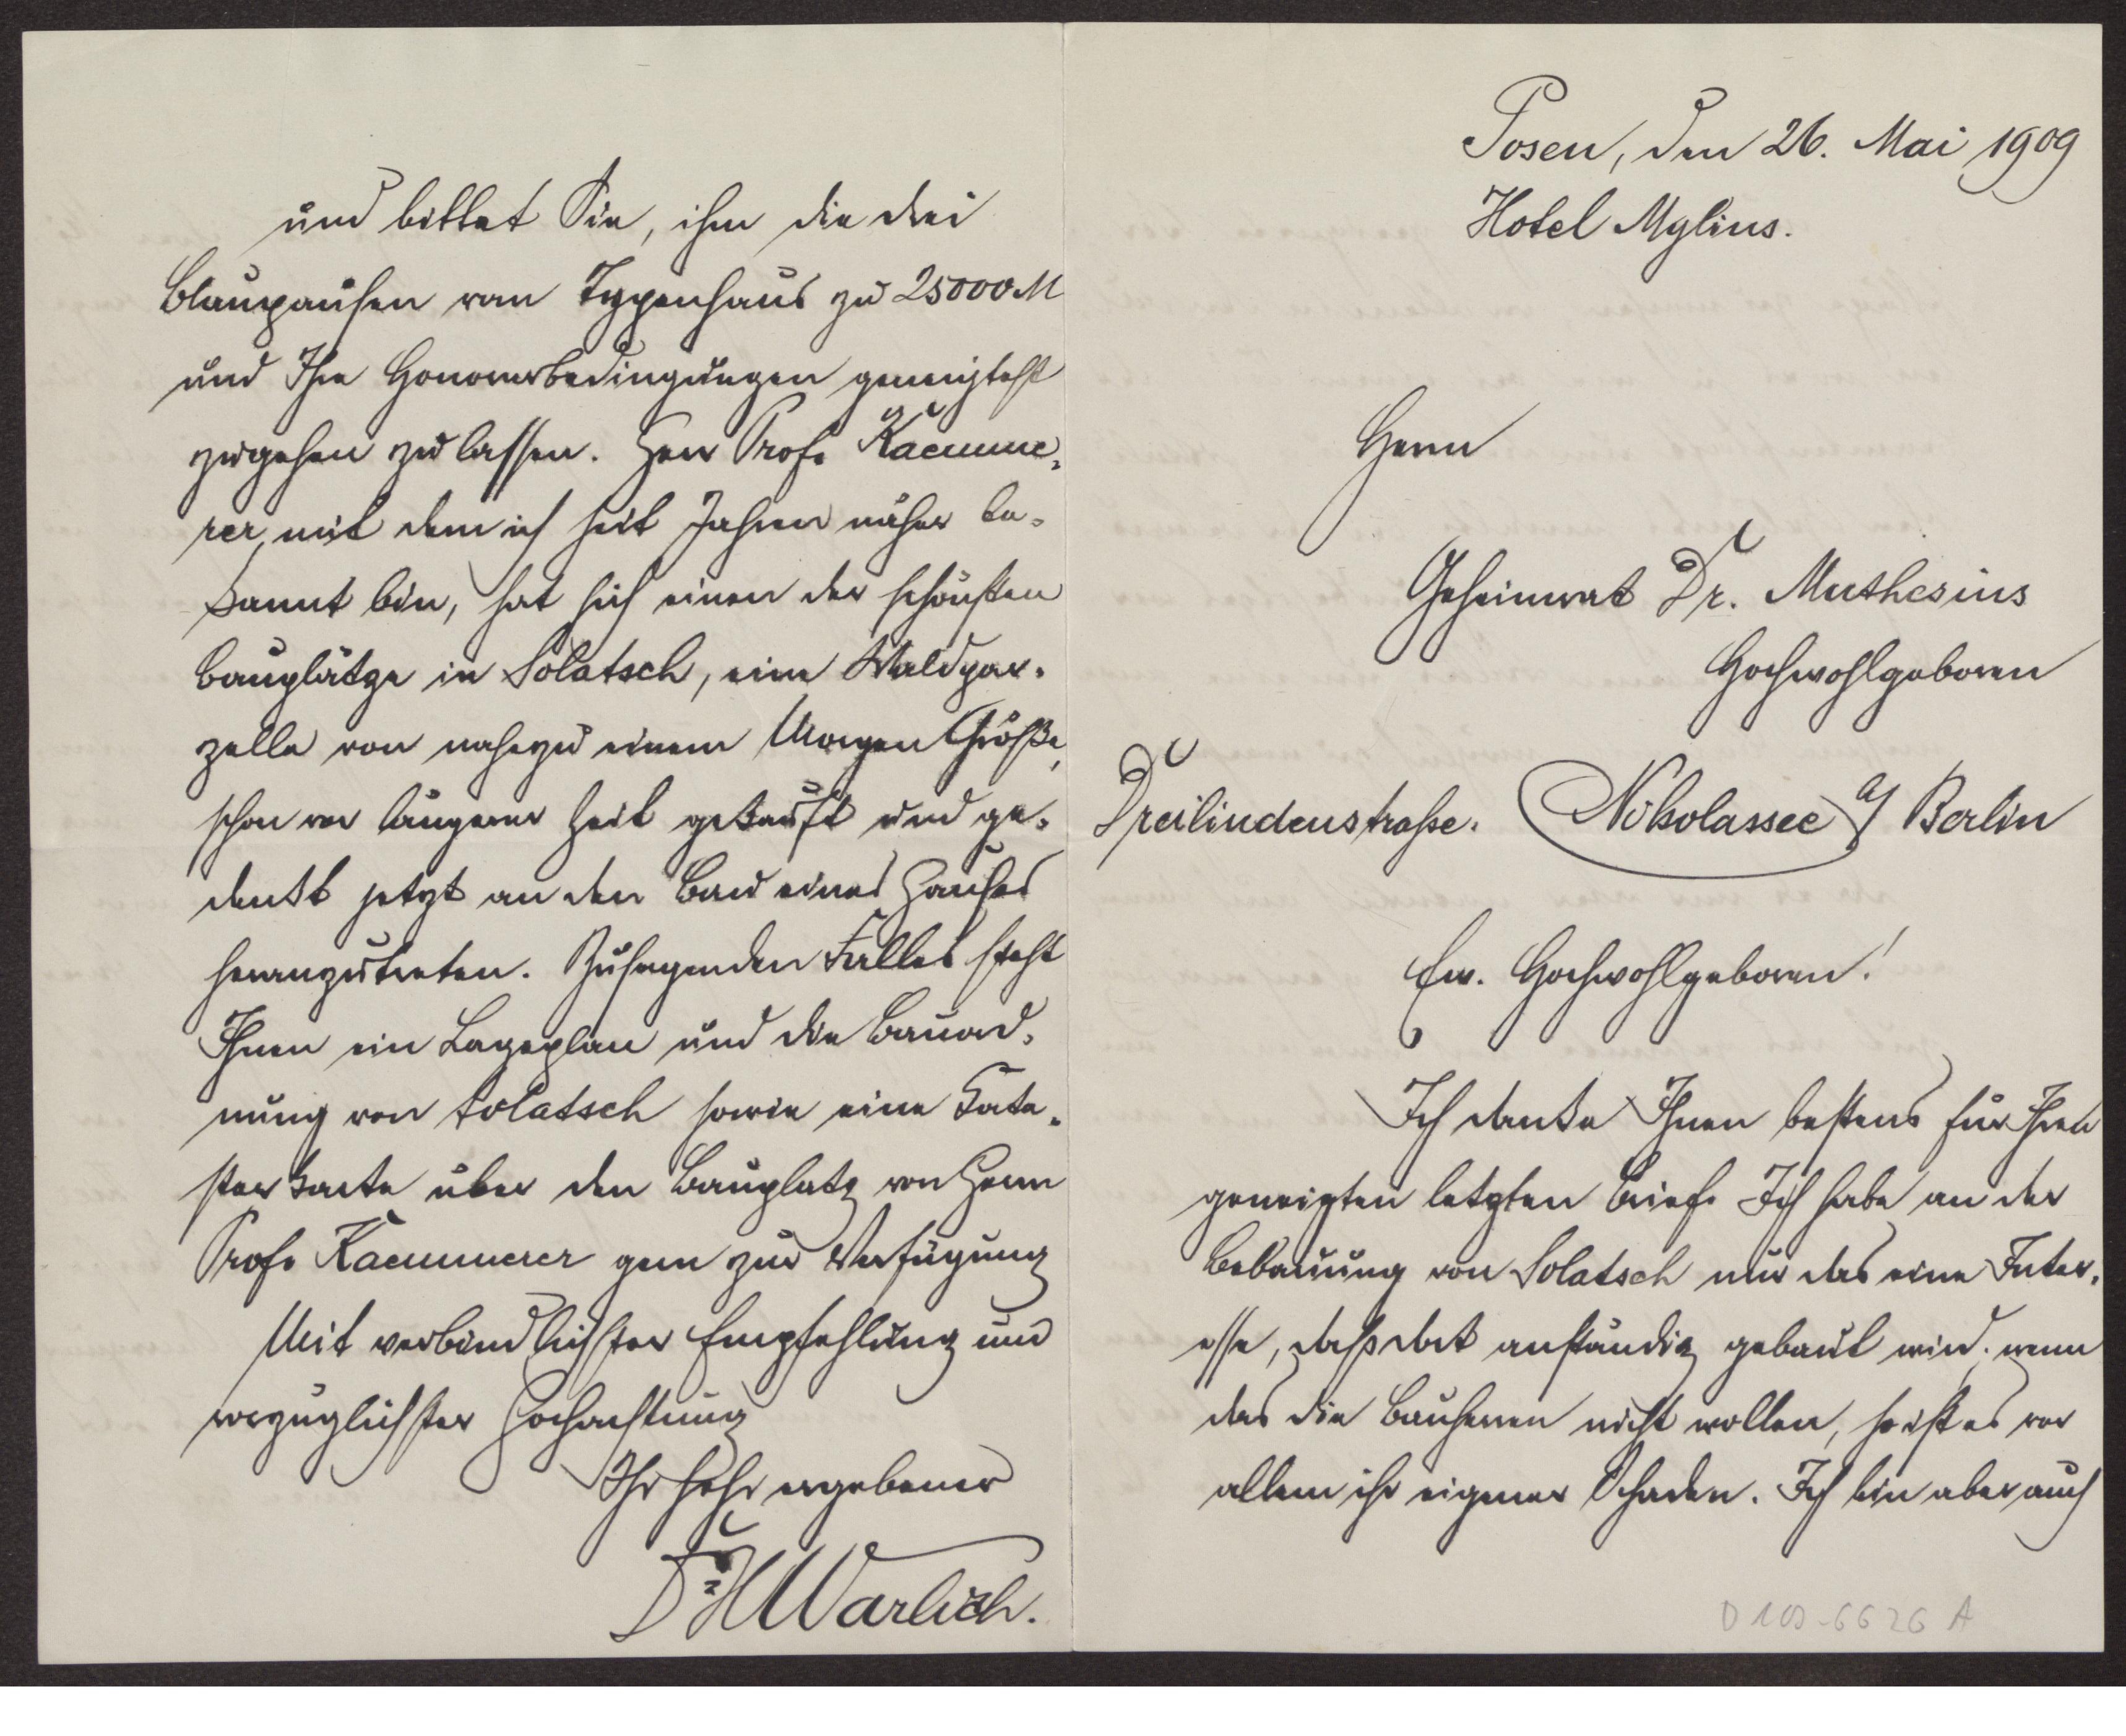 Posen, den 26. Mai 1909
Hotel Mylius.
Herrn
Geheimrat Dr. Muthesius
Hochwohlgeboren
Dreilindenstraße. Nikolassee a/ Berlin
Ew. Hochwohlgeboren!
Ich danke Ihnen bestens für Ihren
geneigten letzten Brief. Ich habe an der
Bebauung von Solatsch nur das eine Inter-
esse, daß dort anständig gebaut wird. wenn
das die Bauherren nicht wollen, so ist es vor
allem ihr eigener Schaden. Ich bin aber auch
D 103-6626 A
und bittet Sie, ihm die drei
Blaupausen vom Typenhaus zu 25000 M
und Ihre Honorarbedingungen geneigtest
zugehen zu lassen. Herr Prof. Kaemme-
rer, mit dem ich seit Jahren näher be-
kannt bin, hat sich einen der schönsten
Bauplätze in Solatsch, eine Waldpar-
zelle von nahezu einem Morgen Größe,
schon vor längerer Zeit gekauft und ge-
denkt jetzt an den Bau eines Hauses
heranzutreten. Zusagenden Falles steht
Ihnen ein Lageplan und die Bauord-
nung von Solatsch sowie eine Kata-
sterkarte über den Bauplatz von Herrn
Prof. Kaemmerer gern zur Verfügung
Mit verbindlichster Empfehlung und
vorzüglichster Hochachtung
Ihr sehr ergebener
Dr HWarlich.